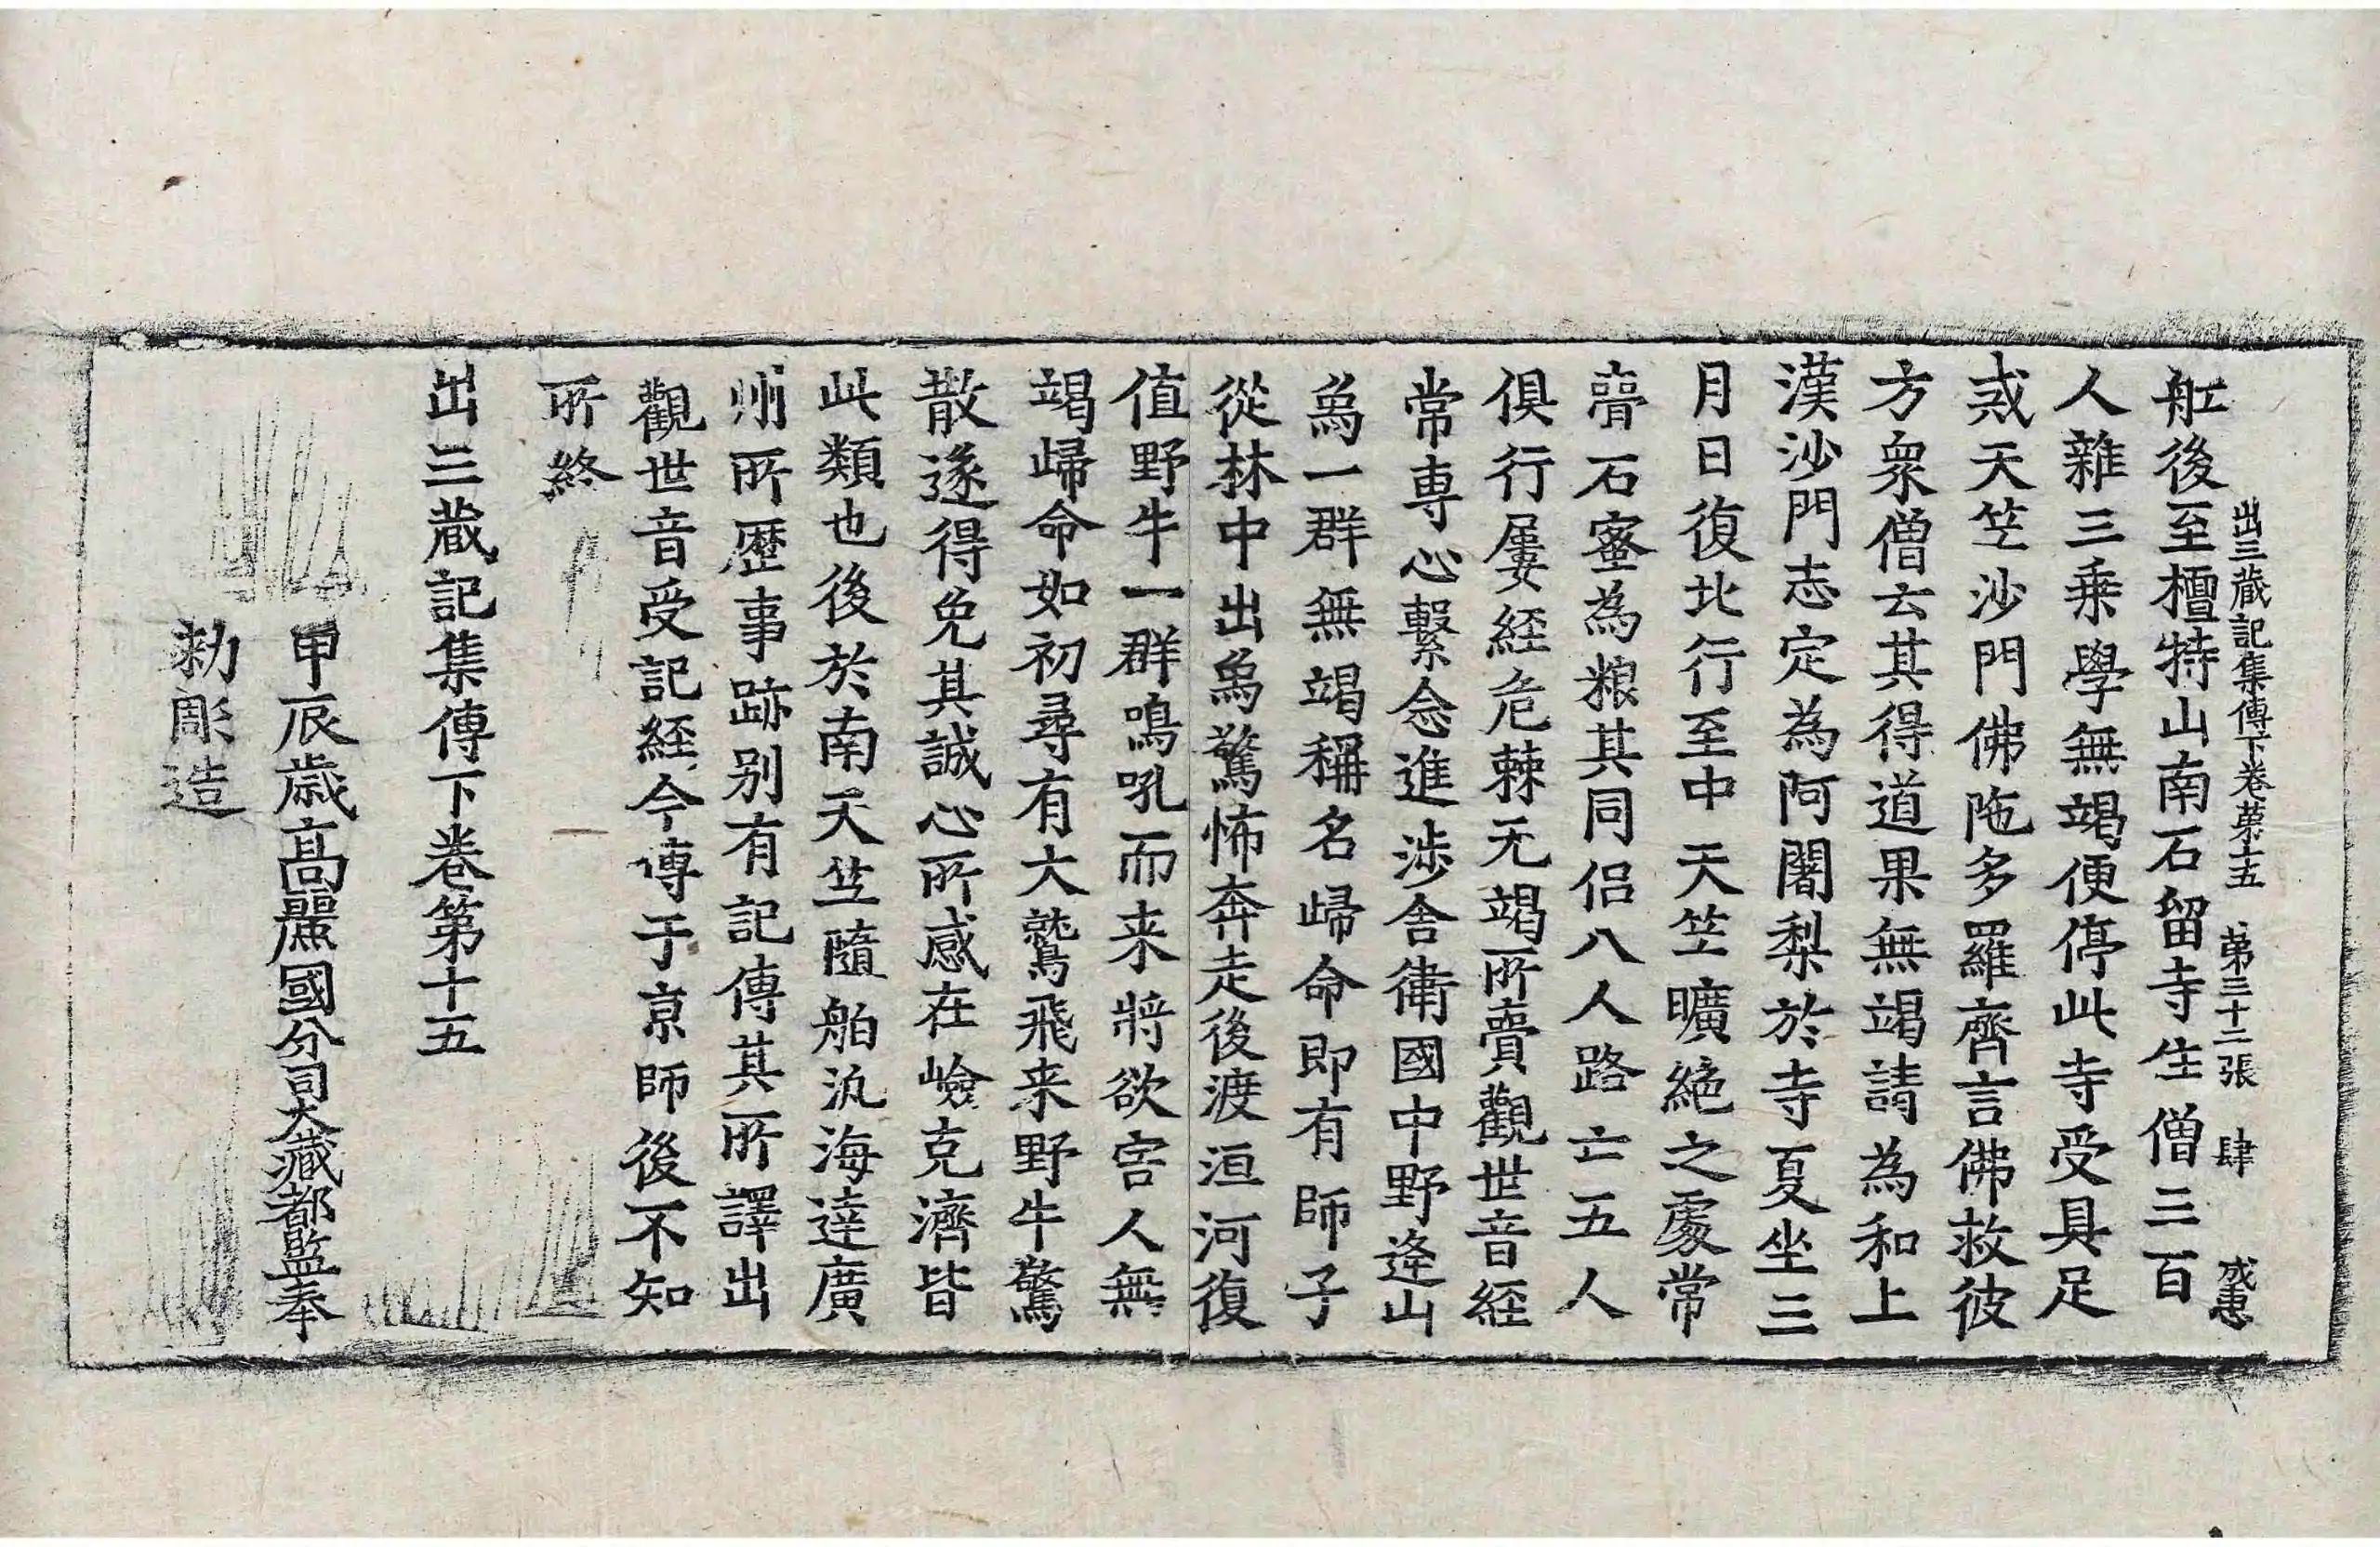 出三蔵記集傳下卷苐十五 苐三十二張 肆 成惠
舡後至檀特山南石留寺住僧三百
人雜三乗學無竭便停此寺受具足
戒天竺沙門佛陁多羅齊言佛救彼
方衆僧云其得道果無竭請為和上
漢沙門志定為阿闍梨於寺夏坐三
月日復北行至中天竺曠絶之處常
賷石蜜為粮其同侣八人路亡五人
俱行屢経危棘无竭所賷觀世音経
常専心繫念進涉舍衛國中野逄山
象一群無竭稱名歸命即有師子
從林中出象驚怖奔走後渡洹河復
值野牛一群鳴吼而来將欲害人無
竭歸命如初尋有大鷲飛来野牛驚
散遂得免其誠心所感在嶮克濟皆
此類也後於南天竺隨舶汎海達廣
州所歴事跡别有記傳其所譯出
觀世音受記経今傳于京師後不知
所終
出三蔵記集傳下卷第十五
甲辰歳高麗國分司大藏都監奉
勑彫造